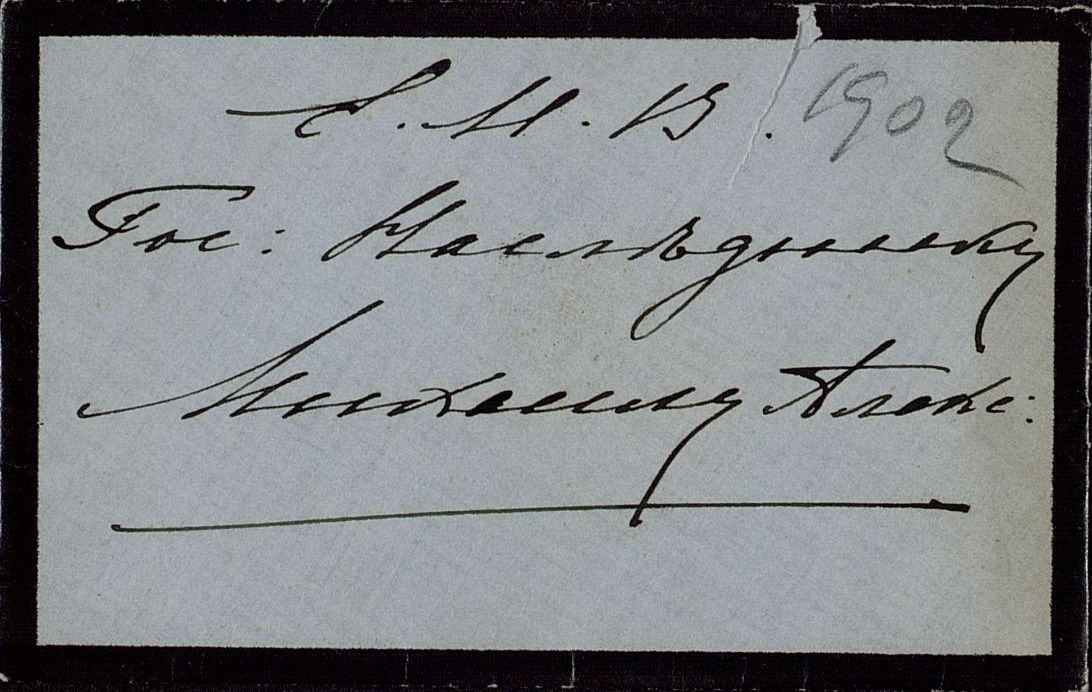 Е. И. В. 1902
Гос: Наслѣднику
Михаилу Алекс: